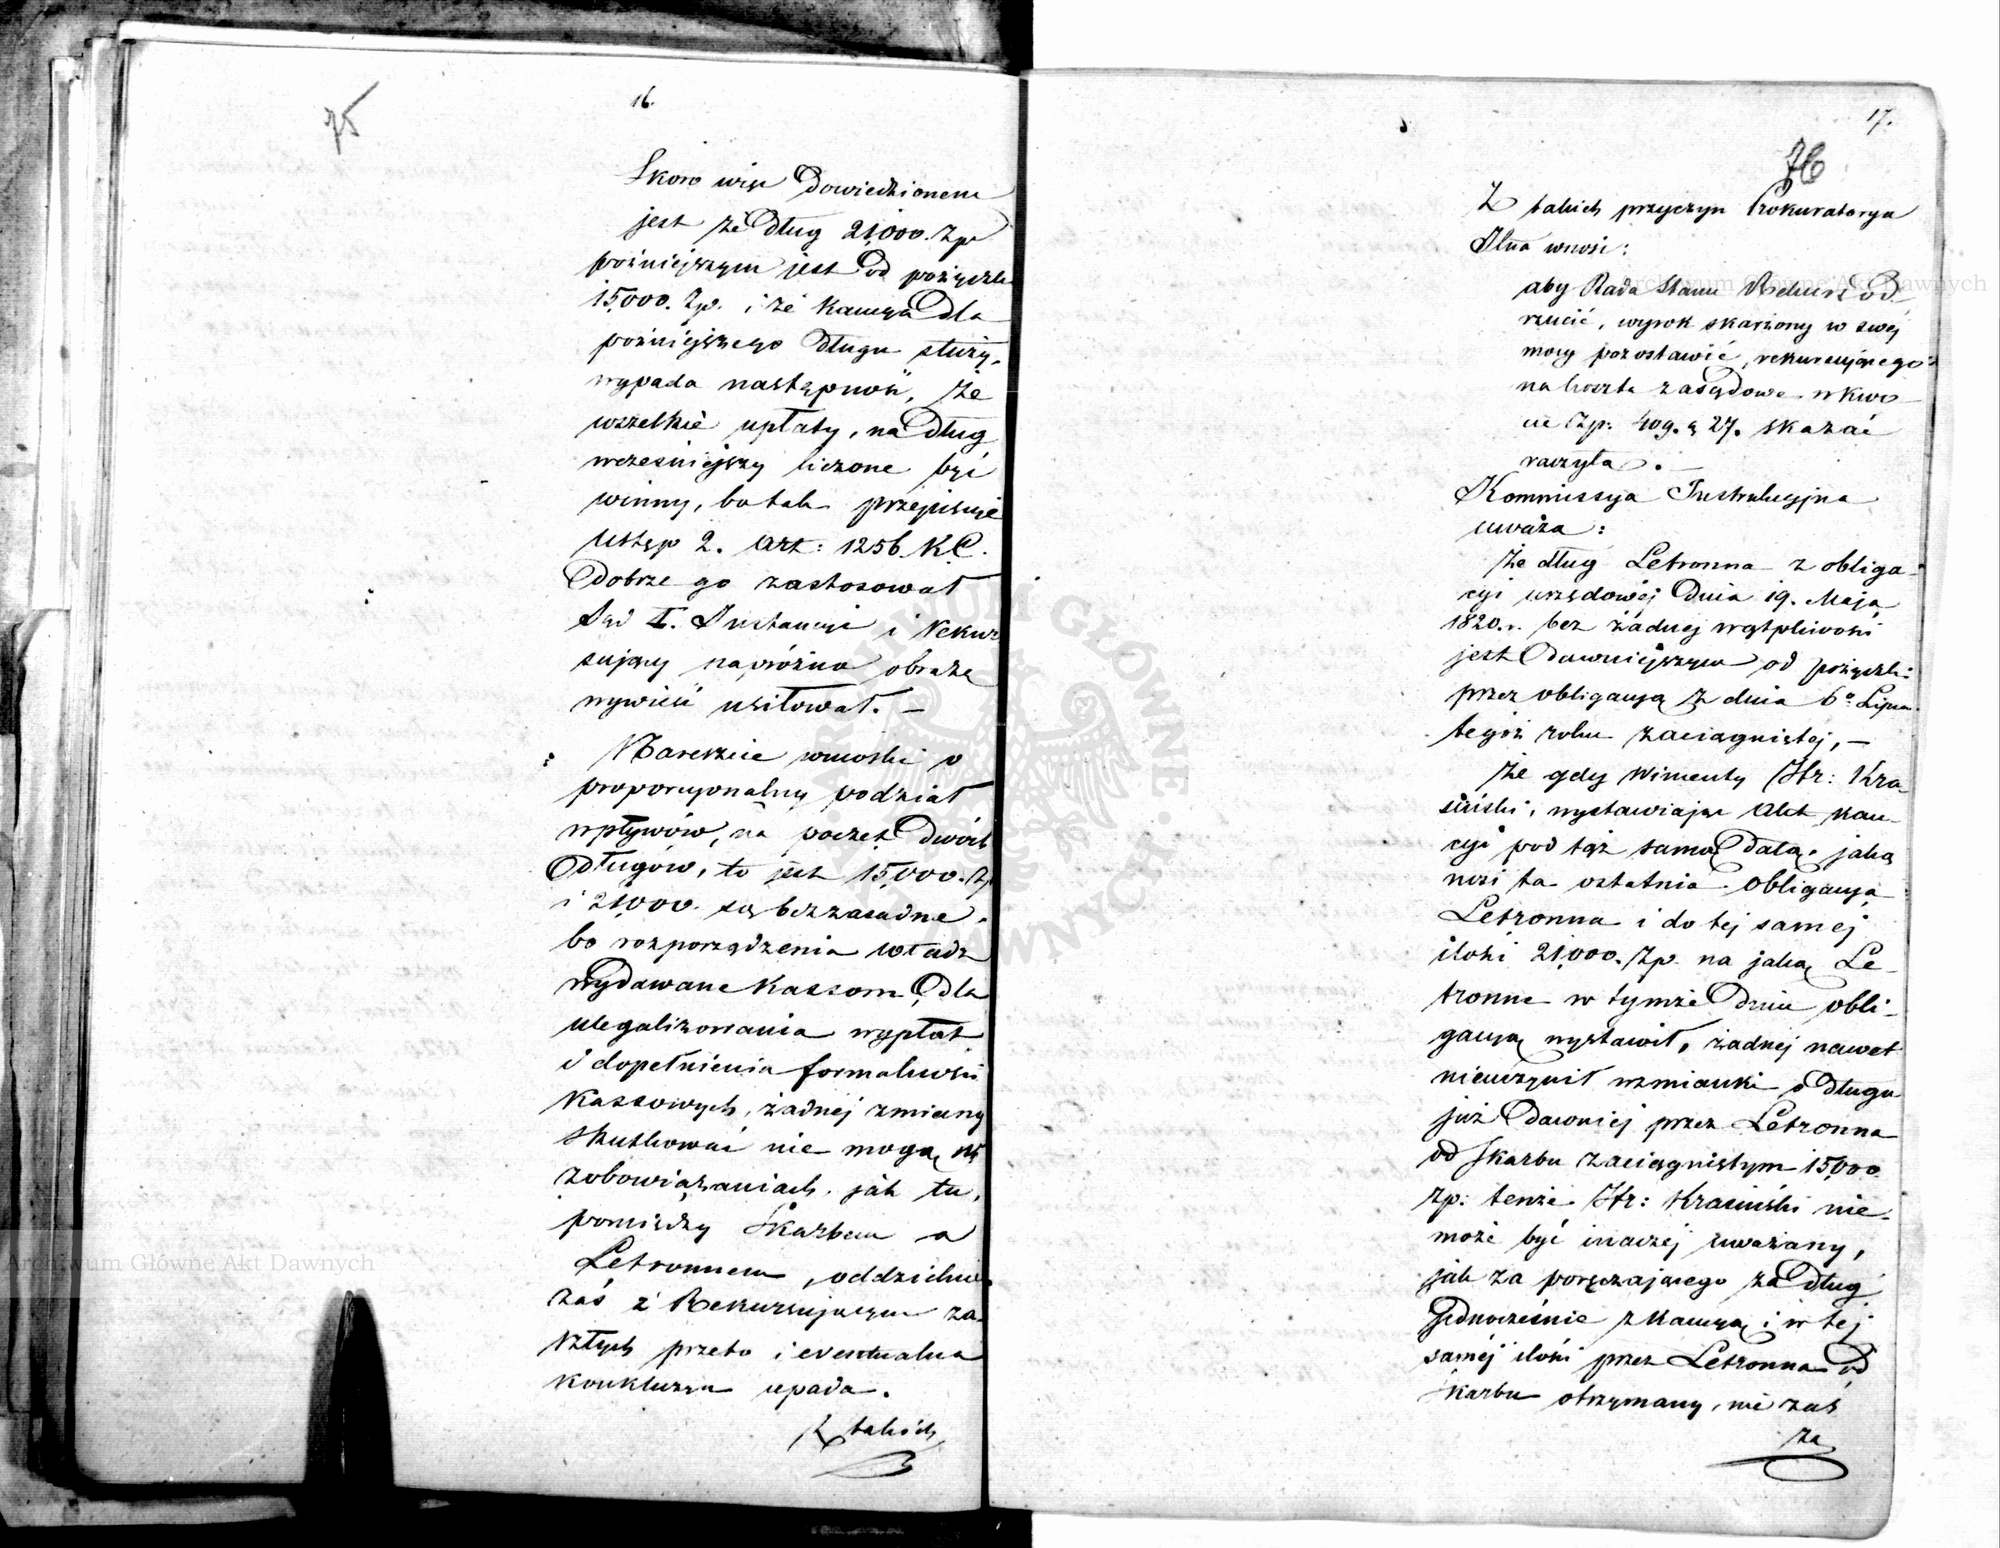 75
16.
Skoro więc Dowiedzionem
jest że Dług 21,000. Zp
poźniejszym jest od pożyczki
15,000. Zp. i że Kaucya dla
poźniejszego Długu służy,
wypada następność, że
wszelkie upłaty, na Dług
wcześniejszy liczone być
winny, bo tak przepisuje
ustęp 2. art: 1256. K.C.
Dobrze go zastosował
Sąd I. Instancyi i Rekur
sujący napróżno obrazę
wywieść usiłował. —
Nareszcie wnioski o
proporcyonalny podział
wpływów, na poczet Dwóch
Długów, to jest 15,000. Zp
i 21,000. są bezzasadne.
bo rozporządzenia władz
wydawane Kassom Dla
ulegalizowania wypłat
i dopełnienia formalności
Kassowych, żadnej zmiany
skutkować nie mogą w
zobowiązaniach, jak tu,
pomiędzy Skarbem a
Letronnem, oddzielnie
zaś z Rekursującym za
szłych przeto i eventualna
konkluzya upada.
Z takich
17.
76
Z takich przyczyn Prokuratorya
Jlna wnosi:
aby Rada Stanu Rekurs od-
rzucić, wyrok skarżony w swéj
mocy pozostawić, rekursującego
na koszta zasądowe w kwo-
cie Zp: 409. g 27. skazać
raczyła. —
Kommissya Instrukcyjna
uważa:
Że dług Letronna z obliga-
cyi urzędowéj Dnia 19. Maja
1820. r. bez żadnej wątpliwości
jest Dawniejszym od pożyczki
przez obligacyą z dnia 6o Lipca
tegoż roku zaciągniętej, —
Że gdy Wincenty Hr: Kra-
siński, wystawiając Akt kau-
cyi pod tąż samą Datą, jaką
nosi ta ostatnia obligacya
Letronna i do tej samej
ilości 21,000. Zp. na jaką Le-
tronne w tymże Dniu obli-
gacyą wystawił, żadnej nawet
nieuczynił wzmianki o Długu
już Dawniej przez Letronna
od Skarbu zaciągniętym 15,000
Zp: tenże Hr: Krasiński nie-
może być inaczej uważany,
jak za poręczającego za Dług
Jednocześnie z Kaucyą i w tej
saméj ilości przez Letronna od
Skarbu otrzymany, nie zaś
za
Archiwum Główne Akt Dawnych
Archiwum Główne Akt Dawnych
ARCHIWUM GŁÓWNE AKT DAWNYCH